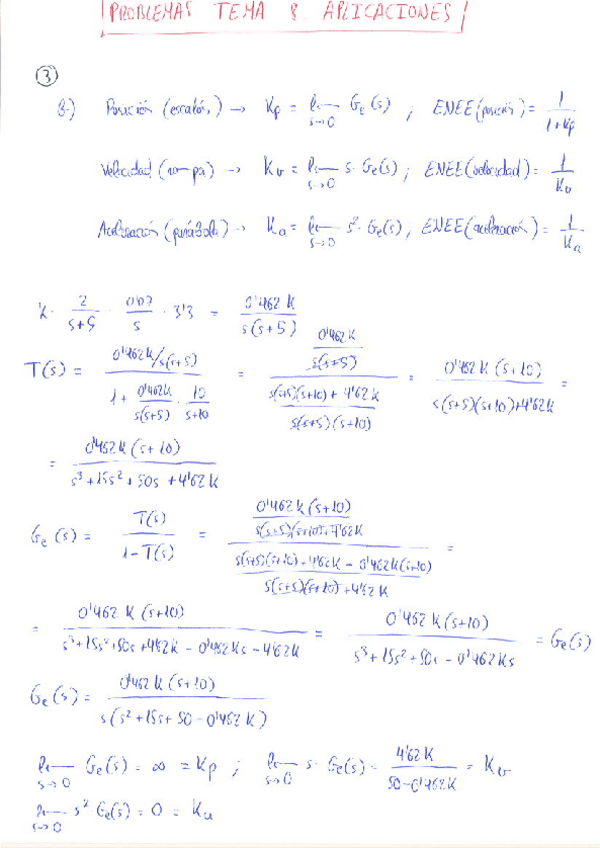 PROBLEMAS TEMA 8. APLICACIONES
3
B.) Posición (escalón) → Kp = lim s→0 Ge(s) ; ENEE(posición) = 1/(1+Kp)
Velocidad (rampa) → Kv = lim s→0 s·Ge(s) ; ENEE(velocidad) = 1/Kv
Aceleración (parábola) → Ka = lim s→0 s²·Ge(s) ; ENEE(aceleración) = 1/Ka
K · 2/(s+5) · 0'07/s · 3'3 = 0'462K/(s(s+5))
T(s) = (0'462K/s(s+5))/(1 + 0'462K/(s(s+5)) · 10/(s+10)) = (0'462K/(s(s+5)))/((s(s+5)(s+10) + 4'62K)/(s(s+5)(s+10))) = 0'462K(s+10)/(s(s+5)(s+10)+4'62K) =
= 0'462K(s+10)/(s³+15s²+50s+4'62K)
Ge(s) = T(s)/(1-T(s)) = (0'462K(s+10)/(s(s+5)(s+10)+4'62K))/((s(s+5)(s+10)+4'62K - 0'462K(s+10))/(s(s+5)(s+10)+4'62K)) =
= 0'462K(s+10)/(s³+15s²+50s+4'62K - 0'462Ks - 4'62K) = 0'462K(s+10)/(s³+15s²+50s - 0'462Ks) = Ge(s)
Ge(s) = 0'462K(s+10)/(s(s²+15s+50-0'462K))
lim s→0 Ge(s) = ∞ = Kp ; lim s→0 s·Ge(s) = 4'62K/(50-0'462K) = Kv
lim s→0 s² Ge(s) = 0 = Ka